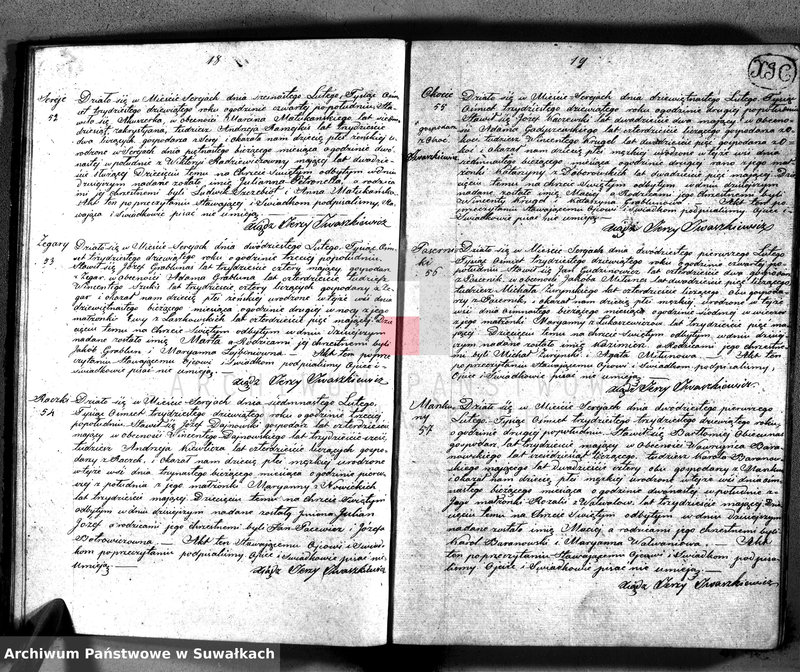 18
Sereje
52
Działo się w Mieście Serejach dnia szesnastego Lutego, Tysiąc Ośm
set trzydziestego dziewiątego roku o godzinie czwartej po południu, Sta
wiła się Akuszerka, w obecności Marcina Matukańskiego lat siedm
dziesiąt, zakrystyana, tudzież Andrzeja lat trzydzieście
dwa liczących gospodarza z i okazała nam dziecię płci żeńskiej u
rodzone w Serejach dnia bieżącego miesiąca o godzinie dwu
nastej w południe z Wiktoryi Radziewiczowny mającej lat dwadzie
ścia Dziecięciu temu na Chrzcie Świętym odbytym w dniu
dzisiejszym nadane zostało imię Julianna Petronela, a rodzica
mi jej chrzestnemi byli Ludwik i Anna Matukańska,
Akt ten po przeczytaniu Stawającej i Świadkom podpisaliśmy, Sta
wająca i Świadkowie pisać nie umieją.
Xiądz Jerzy Iwaszkiewicz
Zegary
53
Działo się w Mieście Serejach dnia dwódziestego Lutego, Tysiąc Ośm
set trzydziestego dziewiątego roku o godzinie trzeciej po południu,
Stawił się Józef Grablunas lat trzydzieście cztery mający gospodarz
z Zegar w obecności Adama Grablina lat czterdzieście, tudzież
Wincentego lat trzydzieście, cztery liczących gospodarzy z Ze
gar i okazał nam dziecię płci żeńskiej urodzone w tejże wsi dnia
dziewiętnastego bieżącego miesiąca o godzinie drugiej w nocy z jego
małżonki Ewy z lat czterdzieście pięć mającej, Dzie
cięciu temu na Chrzcie Świętym odbytym w dniu dzisiejszym
nadane zostało imię Marta a Rodzicami jej chrzestnemi byli
Jakób Grablun i Maryanna — Akt ten po prze
czytaniu Stawającemu Ojcowi i Świadkom podpisaliśmy Ojciec i
Świadkowie pisać nie umieją.
Xiądz Jerzy Iwaszkiewicz
54
Działo się w Mieście Serejach dnia siedmnastego Lutego,
Tysiąc Ośmset trzydziestego dziewiątego roku o godzinie trzeciej
popołudniu Stawił się Józef Dajnowski gospodarz lat czterdzieście
mający w obecności Wincentego Dajnowskiego lat trzydzieście sześć,
tudzież Andrzeja lat czterdzieście liczących gospo
darzy z i okazał nam dziecię płci męzkiej urodzone
w tejże wsi dnia trzynastego bieżącego miesiąca o godzinie pierw
szej z południa z jego małżonki Maryanny z Nowickich
lat trzydzieście mającej. Dziecięciu temu na Chrzcie Świętym
odbytym w dniu dzisiejszym nadane zostały imiona Julian
Józef a rodzicami jego chrzestnemi byli Jan i Józefa
— Akt ten Stawającemu Ojcowi i Świad
kom po przeczytaniu podpisaliśmy, Ojciec i Świadkowie pisać nie
umieją.
Xiądz Jerzy Iwaszkiewicz
19
55
gospodarz
Działo się w Mieście Serejach dnia dziewiętnastego Lutego Tysiąc
Ośmset trzydziestego dziewiątego roku o godzinie drugiej popołudniu
Stawił się Józef lat dwadzieścia dwa mający, w obecno
ści Adama lat czterdzieście liczącego gospodarza
tudzież Wincentego lat dwadzieście pięć gospodarza
i okazał nam dziecię płci męzkiej urodzone w tejże wsi dnia
siedmnastego bieżącego miesiąca o godzinie drugiej rano z jego mał
żonki Katarzyny z Dąbrowskich lat dwadzieście pięć mającej.
Dziecięciu temu na Chrzcie Świętym odbytym w dniu dzisiejszym
nadane zostało imię Maciej a Rodzicami jego chrzestnemi byli
Wincenty i Katarzyna Grablunowa — Akt ten po
przeczytaniu Stawającemu Ojcowi i Świadkom podpisaliśmy Ojciec i
Świadkowie pisać nie umieją.
Xiądz Jerzy Iwaszkiewicz
56
Działo się w Mieście Serejach dnia dwódziestego pierwszego Lutego
Tysiąc Ośmset trzydziestego dziewiątego roku o godzinie czwartej po
południu Stawił się Jan lat czterdzieście dwa gospodarz
w obecności Jakóba lat dwadzieście pięć liczącego,
tudzież Michała lat czterdzieście liczącego, obu gospoda
rzy i okazał nam dziecię płci męzkiej, urodzone w tejże
wsi dnia ośmnastego bieżącego miesiąca o godzinie siódmej w wieczór
z jego małżonki Maryanny z Łukaszewiczów lat trzydzieście pięć ma
jącej. Dziecięciu temu na Chrzcie Świętym odbytym w dniu dzisiej
szym nadane zostało imię Kazimierz a Rodzicami jego chrzestne
mi byli Michał i Agata — Akt ten
po przeczytaniu Stawającemu Ojcowi i Świadkom podpisaliśmy,
Ojciec i Świadkowie pisać nie umieją.
Xiądz Jerzy Iwaszkiewicz
57
Działo się w Mieście Serejach dnia dwódziestego pierwszego
Lutego Tysiąc Ośmset trzydziestego dziewiątego roku,
o godzinie drugiej popołudniu Stawił się Bartłomiej
gospodarz lat trzydzieście mający w obecności Wawrzyńca Bara
nowskiego lat sześćdziesiąt liczącego, tudzież Karola Baranow
skiego mającego lat dwadzieście cztery, obu gospodarzy
i okazał nam dziecię płci męzkiej urodzone w tejże wsi dnia ośm
nastego bieżącego miesiąca o godzinie dwunastej w południe z
jego małżonki Rozalii lat trzydzieście mającej. Dzie
cięciu temu na Chrzcie Świętym odbytym w dniu dzisiejszym
nadane zostało imię Maciej a rodzicami jego chrzestnemi byli
Karol Baranowski i Maryanna — Akt
ten po przeczytaniu Stawającemu Ojcowi i Świadkom podpisa
liśmy Ojciec i Świadkowie pisać nie umieją.
Xiądz Jerzy Iwaszkiewicz
Archiwum Państwowe w Suwałkach